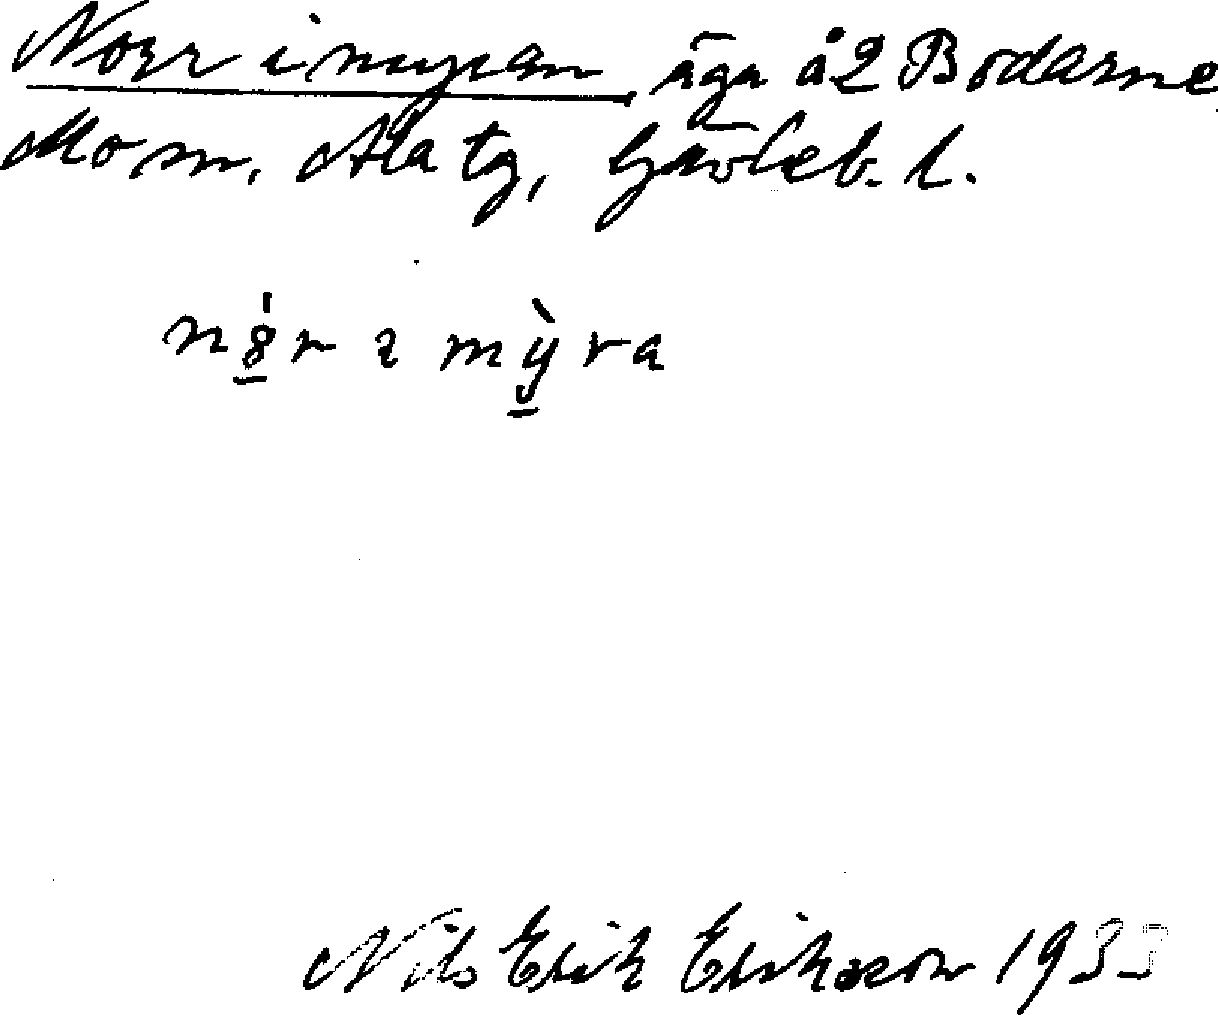 Norr i myran, äga å 2 Bodarne
Mo sn, Ala tg, Gävleb. l.
n8́r ɩ mỳra
Nils Erik Eriksson 1933